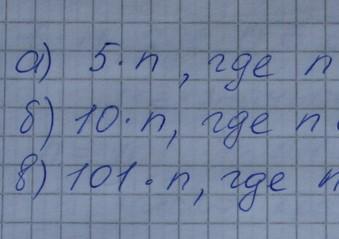 а) 5·n, где n
б) 10·n, где n
в) 101·n, где n